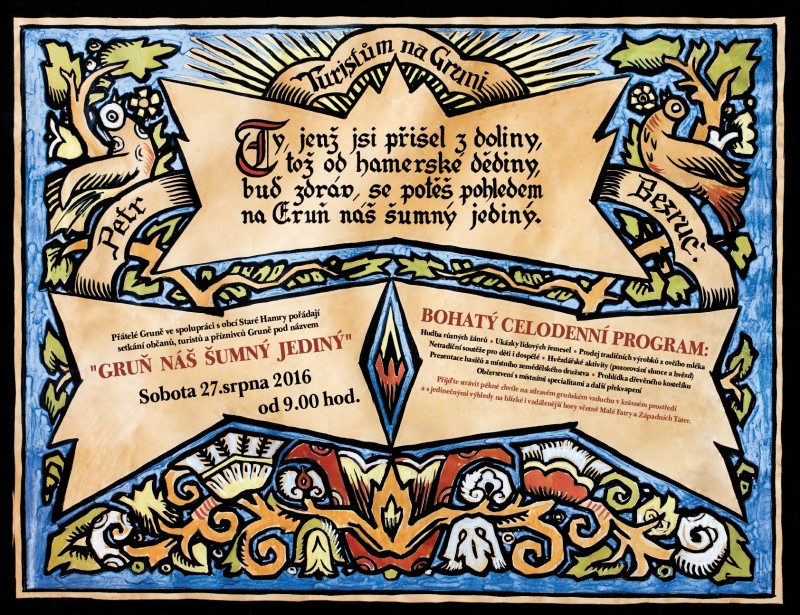 Turistům na Gruni
Ty, jenž jsi přišel z doliny,
tož od hamerské dědiny,
buď zdráv, se potěš pohledem
na Gruň náš šumný jediný.
Petr
Bezruč.
Přátelé Gruně ve spolupráci s obcí Staré Hamry pořádají
setkání občanů, turistů a příznivců Gruně pod názvem
"GRUŇ NÁŠ ŠUMNÝ JEDINÝ"
Sobota 27.srpna 2016
od 9.00 hod.
BOHATÝ CELODENNÍ PROGRAM:
Hudba různých žánrů • Ukázky lidových řemesel • Prodej tradičních výrobků z ovčího mléka
Netradiční soutěže pro děti i dospělé • Hvězdářské aktivity (pozorování slunce a hvězd)
Prezentace hasičů a místního zemědělského družstva • Prohlídka dřevěného kostelíku
Občerstvení s místními specialitami a další překvapení
Přijďte strávit pěkné chvíle na zdravém gruňském vzduchu v krásném prostředí
a s jedinečnými výhledy na blízké i vzdálenější hory včetně Malé Fatry a Západních Tater.